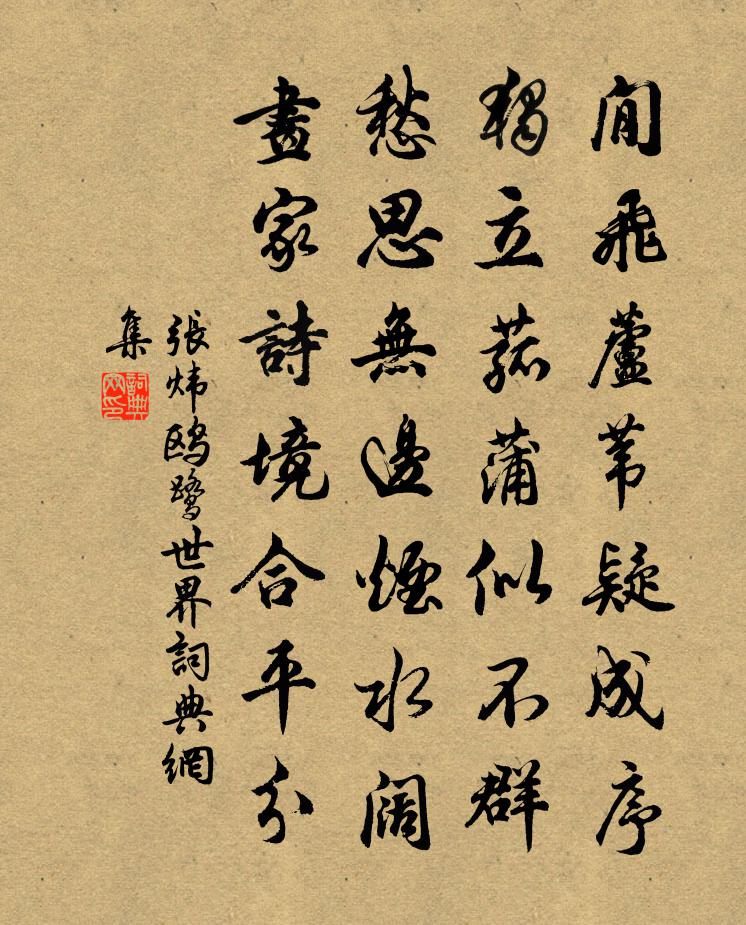 閒飛蘆葦疑成序
獨立菰蒲似不群
愁思無邊煙水闊
畫家詩境合平分
張炜鸥鹭世界詞典網
集
詞典網印